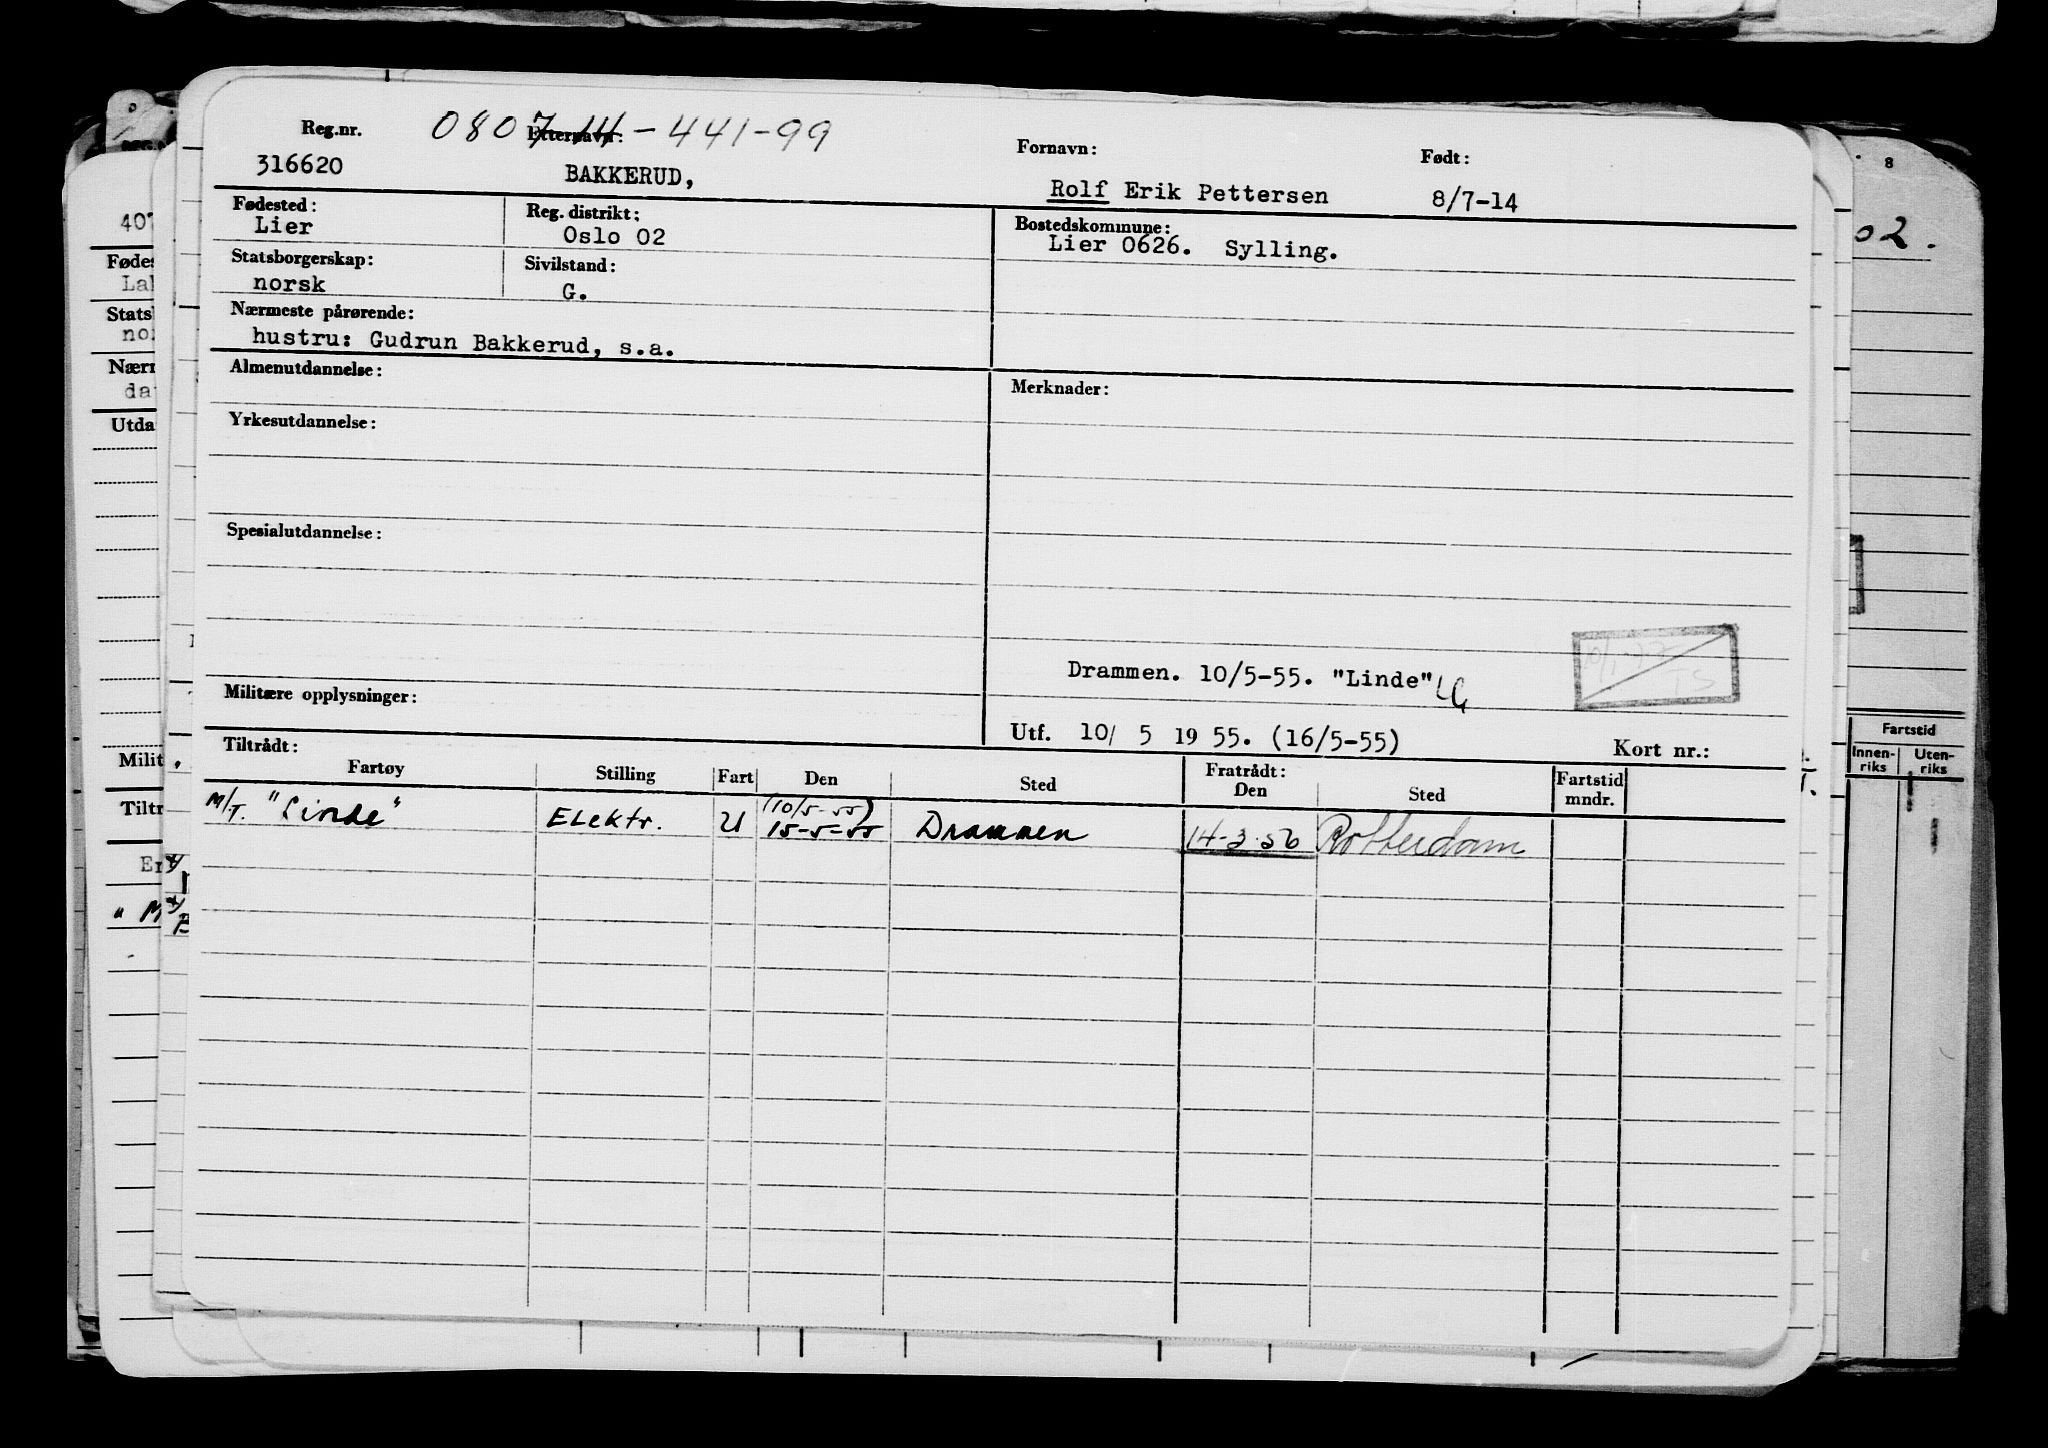 Reg.nr. 080714-441-99 Etternavn: Fornavn: Født:
316620 BAKKERUD, Rolf Erik Pettersen 8/7-14
Fødested: Reg. distrikt: Bostedskommune:
Lier Oslo 02 Lier 0626. Sylling.
Statsborgerskap: Sivilstand:
norsk G.
Nærmeste pårørende:
hustru: Gudrun Bakkerud, s.a.
Almenutdannelse: Merknader:
Yrkesutdannelse:
Spesialutdannelse:
Drammen. 10/5-55. "Linde"
Militære opplysninger:
Utf. 10/ 5 19 55. (16/5-55) Kort nr.:
Tiltrådt: Fratrådt:
Fartøy Stilling Fart Den Sted Den Sted Fartstid mndr.
(10/5-55)
M/T. "Linde" Elektr. U 15-5-55 Drammen 14-3-56 Rotterdam
407
Lal
dar
Milit
8
02.
Fartstid
Innen-riks Uten-riks